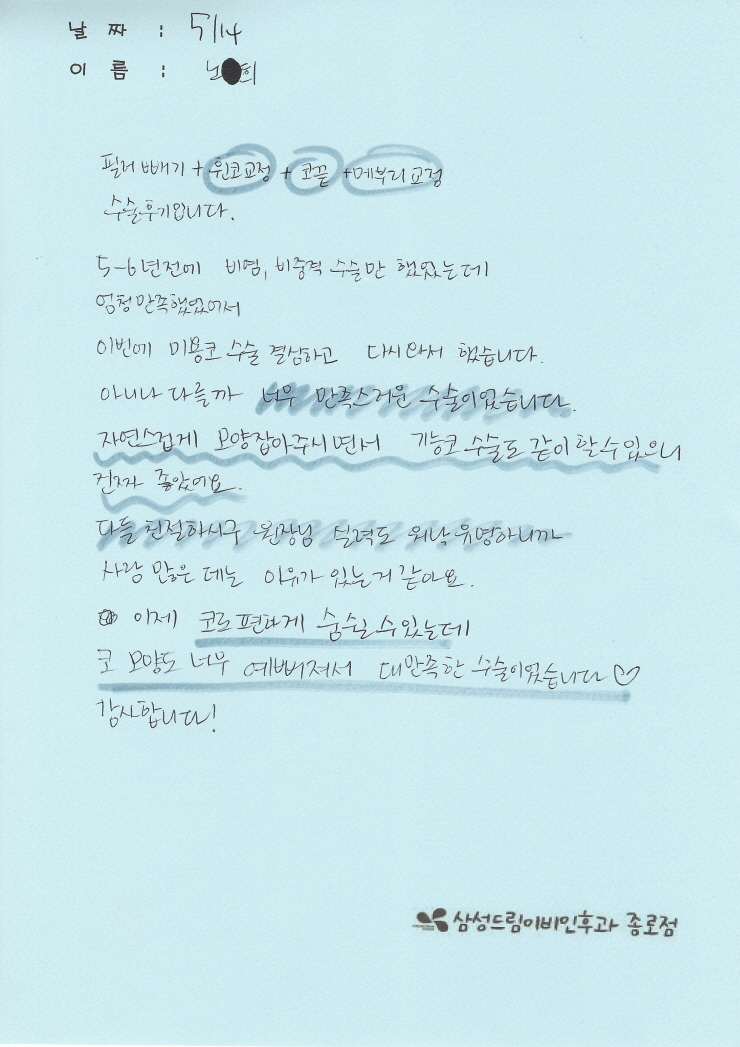 날 짜 : 5/14
이 름 : 노 희
필러빼기 + 휜코교정 + 코끝 + 메부리교정
수술후기입니다.
5-6년전에 비염, 비중격 수술만 했었는데
엄청만족했었어서
이번에 미용코 수술 결심하고 다시와서 했습니다.
아니나 다를까 너무 만족스러운 수술이었습니다.
자연스럽게 모양잡아주시면서 기능코 수술도 같이 할 수 있으니
진짜 좋았어요.
다들 친절하시구 원장님 실력도 워낙 유명하니까
사람 많은 데는 이유가 있는거 같아요.
이제 코로 편하게 숨쉴 수 있는데
코 모양도 너무 예뻐져서 대만족한 수술이었습니다♡
감사합니다!
삼성드림이비인후과 종로점